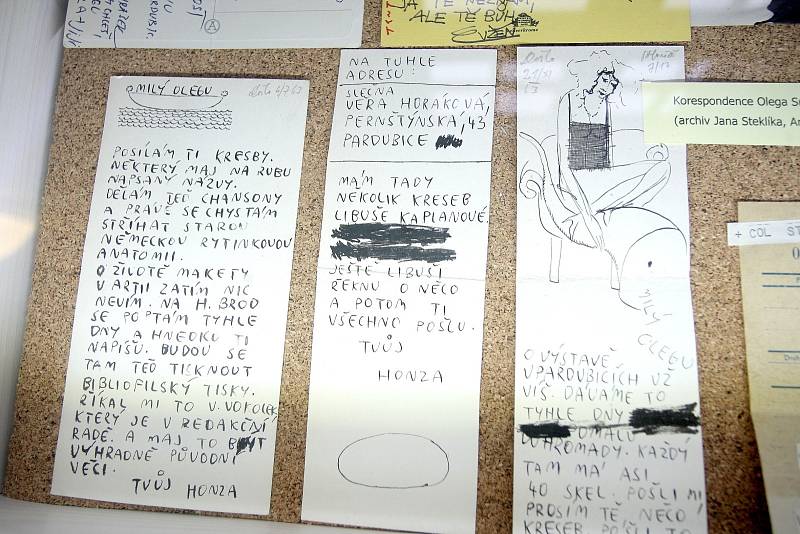 ALE TĚ BŮH
EVŽEN
MILÝ OLEGU
POSÍLÁM TI KRESBY.
NĚKTERÝ MAJ NA RUBU
NAPSANÝ NÁZVY.
DĚLÁM TEĎ CHANSONY
A PRÁVĚ SE CHYSTÁM
STŘÍHAT STAROU
NĚMECKOU RYTINKOVOU
ANATOMII.
O ŽILOTĚ MAKETY
V ARTII ZATÍM NIC
NEVÍM. NA H. BROD
SE POPTÁM TYHLE
DNY A HNEDKU TI
NAPÍŠU. BUDOU SE
TAM TEĎ TISKNOUT
BIBLIOFILSKÝ TISKY.
ŘÍKAL MI TO V. VOKOLEK,
KTERÝ JE V REDAKČNÍ
RADĚ. A MAJ TO BÝT
VÝHRADNĚ PŮVODNÍ
VĚCI.
TVŮJ HONZA
NA TUHLE
ADRESU:
SLEČNA
VĚRA HORÁKOVÁ,
PERNŠTÝNSKÁ, 43
PARDUBICE
MÁM TADY
NĚKOLIK KRESEB
LIBUŠE KAPLANOVÉ.
JEŠTĚ LIBUŠI
ŘEKNU O NĚCO
A POTOM TI
VŠECHNO POŠLU.
TVŮJ
HONZA
MILÝ
OLEGU
O VÝSTAVĚ
V PARDUBICÍCH UŽ
VÍŠ. DÁVÁME TO
TYHLE DNY
POMALU
DOHROMADY. KAŽDÝ
TAM MÁ ASI
40 SKEL. POŠLI MI
PROSÍM TĚ NĚCO!
KRESEB. POŠLI TO
Korespondence Olega
(archiv Jana Steklíka,
+ COL